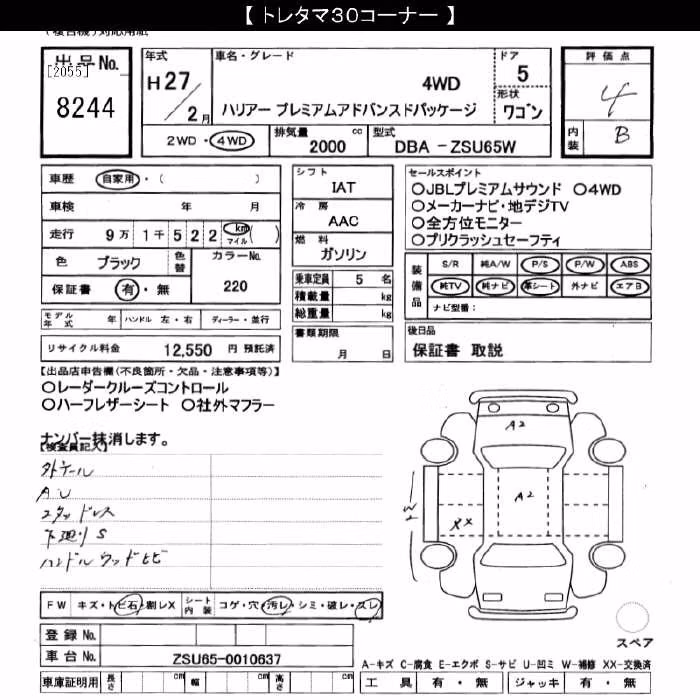 【 トレタマ30コーナー 】
(複合機)対応用紙
出品No. [2055]
8244
年式
H27/2月
車名・グレード
4WD
ハリアー プレミアムアドバンスドパッケージ
ドア
5
形状
ワゴン
評価点
4
内装 B
2WD・4WD
排気量 cc
2000
型式
DBA －ZSU65W
車歴 自家用・( )
車検 年 月
走行 9万 1千 5 2 2 km マイル ( )
色 ブラック 色替 カラーNo.
220
保証書 有・無
モデル年式 年 ハンドル 左・右 ディーラー・並行
リサイクル料金 12,550 円 預託済
シフト
IAT
冷房
AAC
燃料
ガソリン
乗車定員 5 名
積載量 kg
総重量 kg
書類期限
月 日
セールスポイント
○JBLプレミアムサウンド ○4WD
○メーカーナビ・地デジTV
○全方位モニター
○プリクラッシュセーフティ
装備品 S/R 純A/W P/S P/W ABS
純TV 純ナビ 革シート 外ナビ エアB
ナビ型番：
後日品
保証書 取説
【出品店申告欄(不良箇所・欠品・注意事項等)】
○レーダークルーズコントロール
○ハーフレザーシート ○社外マフラー
ナンバー抹消します。
【検査員記入】
外テール
AU
スタッドレス
下廻りS
ハンドルウッドヒビ
A2
A2
XX
W2
FW キズ・トビ石・割レX シート内装 コゲ・穴・汚レ・シミ・破レ・スレ
登録 No.
車台 No. ZSU65-0010637
車庫証明用 長さ cm 幅 cm 高さ cm
スペア
A-キズ C-腐食 E-エクボ S-サビ U-凹ミ W-補修 XX-交換済
工具 有・無 ジャッキ 有・無